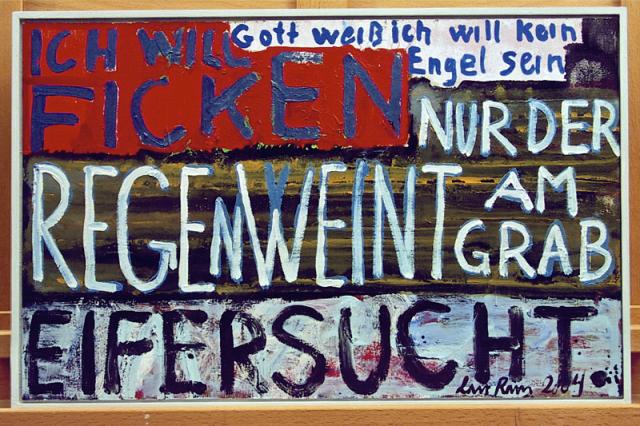 ICH WILL
FICKEN
Gott weiß ich will kein
Engel sein
NUR DER
REGEN WEINT
AM
GRAB
EIFERSUCHT.
2004